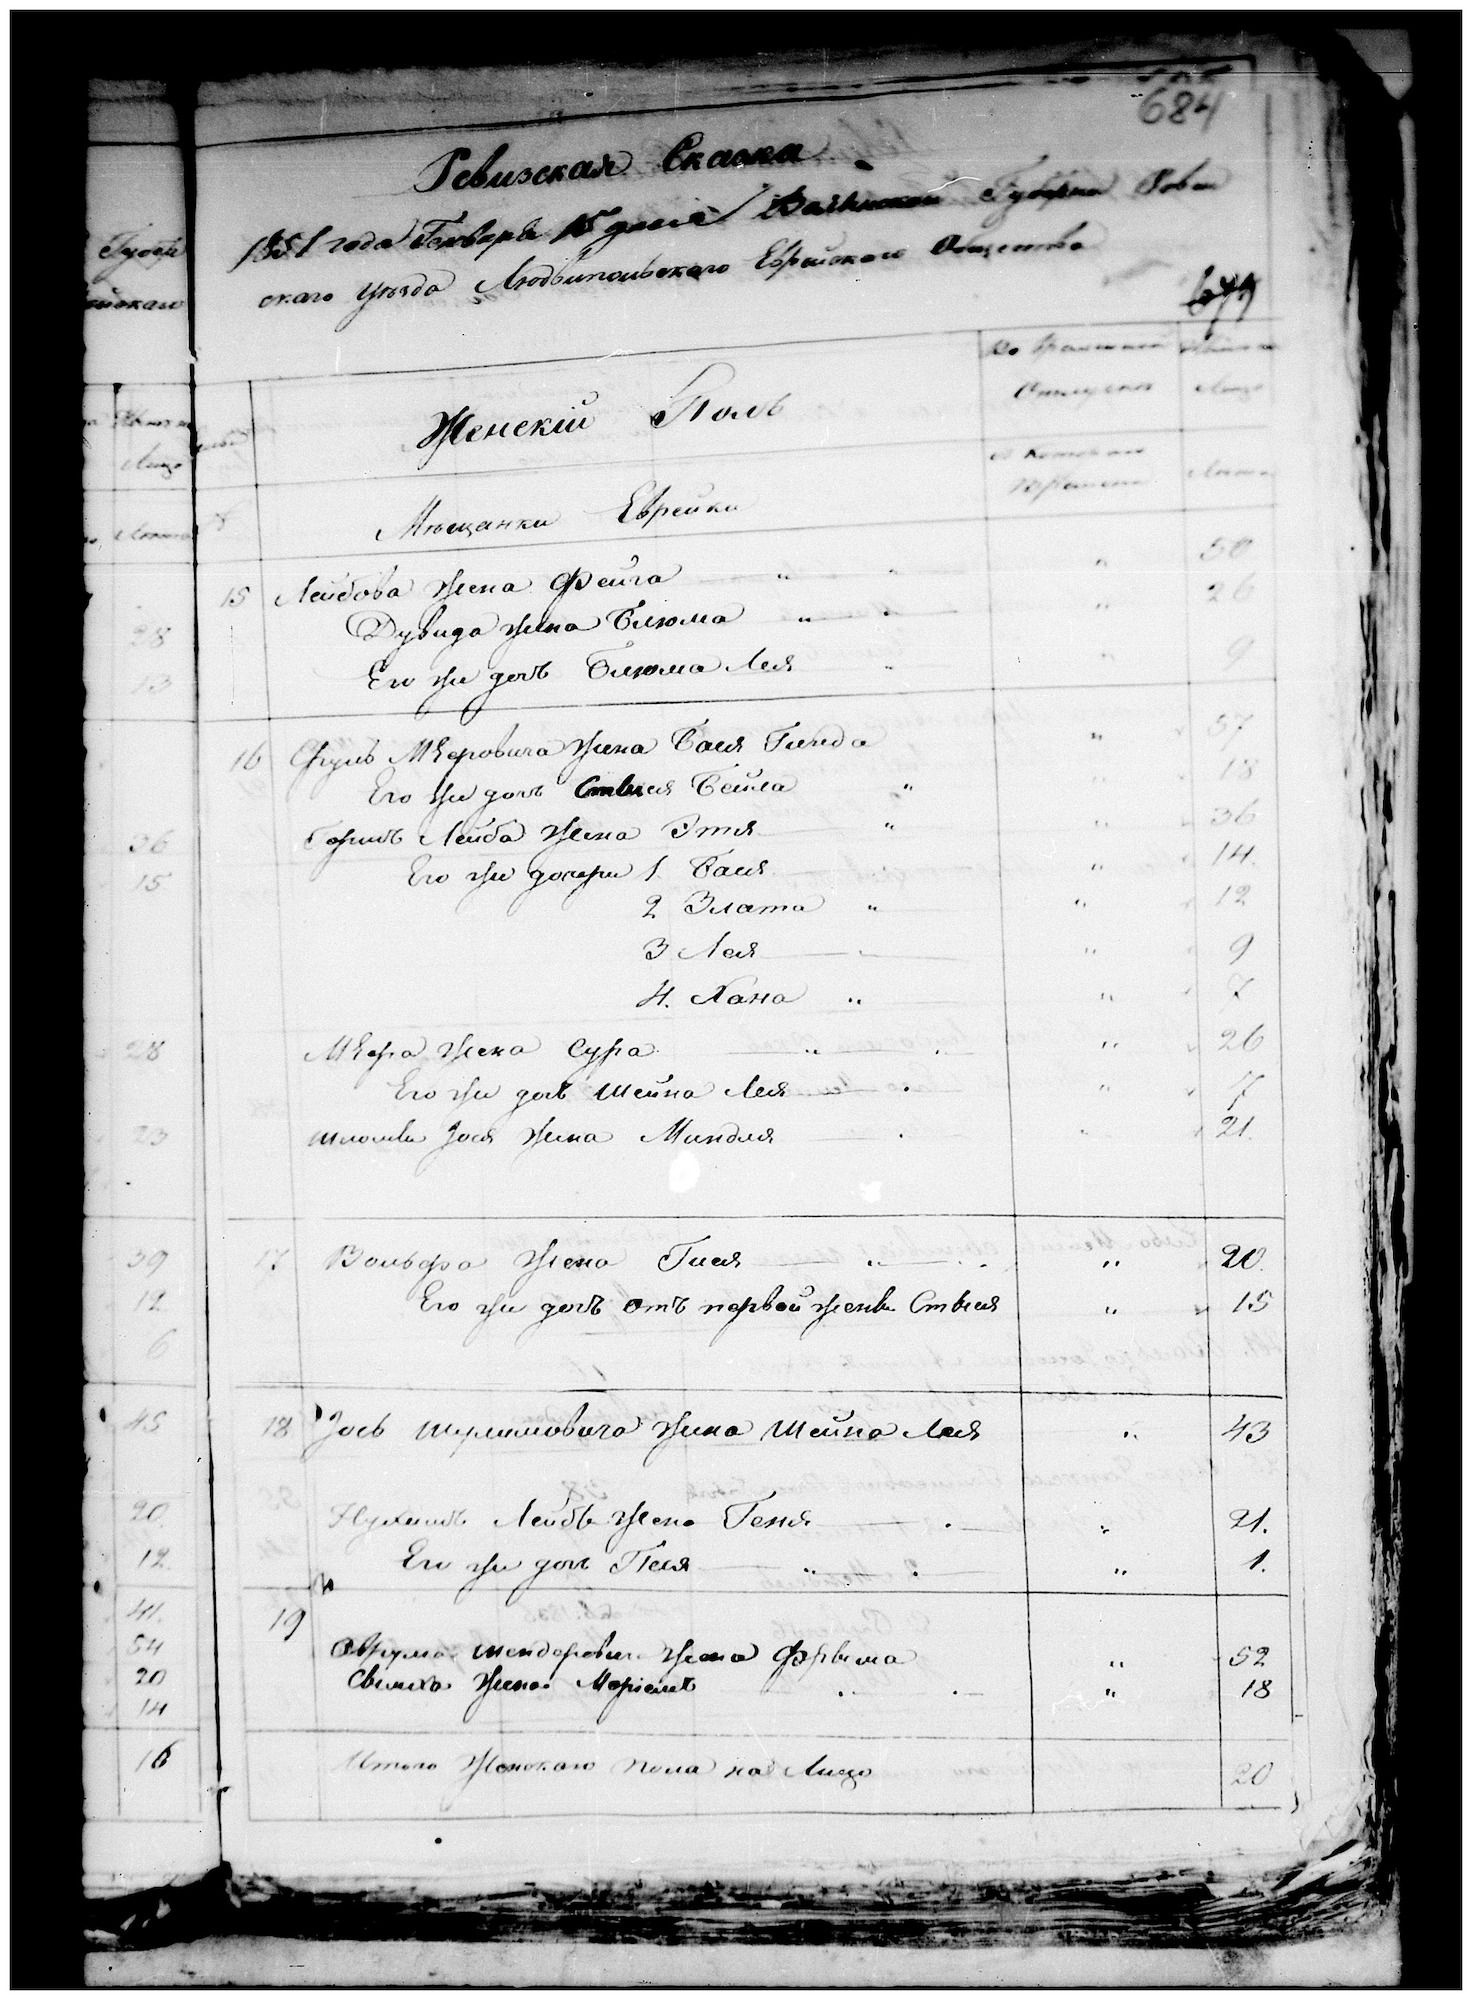 684
Ревизская Сказка
1851 года Генваря 15 дня Волынской Губерніи Ровен
скаго уѣзда Людвипольскаго Еврейскаго Общества
679
Губерн
Женскій Полъ
Во временной
отлучкѣ
Лицо
Лицо
Съ котораго
времени
Лѣта
8
Мѣщанки Еврейки
15 Лейбова жена Фейга " " 50
Дувида жена Блюма " " 26
28
Его же дочь Блюма Лея " 9
13
16 жена Бася Гинда " 57
Его же дочь Стыся Бейла " " 18
36
Лейба жена Этя " " 36
15
Его же дочери 1. Бася " 14.
2 Злата " " 12
3 Лея " 9
4. Хана " " 7
28
Мѣера жена Сура " " 26
Его же дочь Шейна Лея " 7
23
Іося жена Миндля 21.
39
17 Вольфа жена Гися " " 20.
12
Его же дочь отъ первой жены Стыся " 15
6
45
18 Іось жена Шейна Лея " 43
20.
Лейбы жена Геня " 21.
12.
Его же дочь Песя " " 1.
41.
19
54
жена 52
20
жена " 18
14
16
Итого женскаго пола на лицо 20